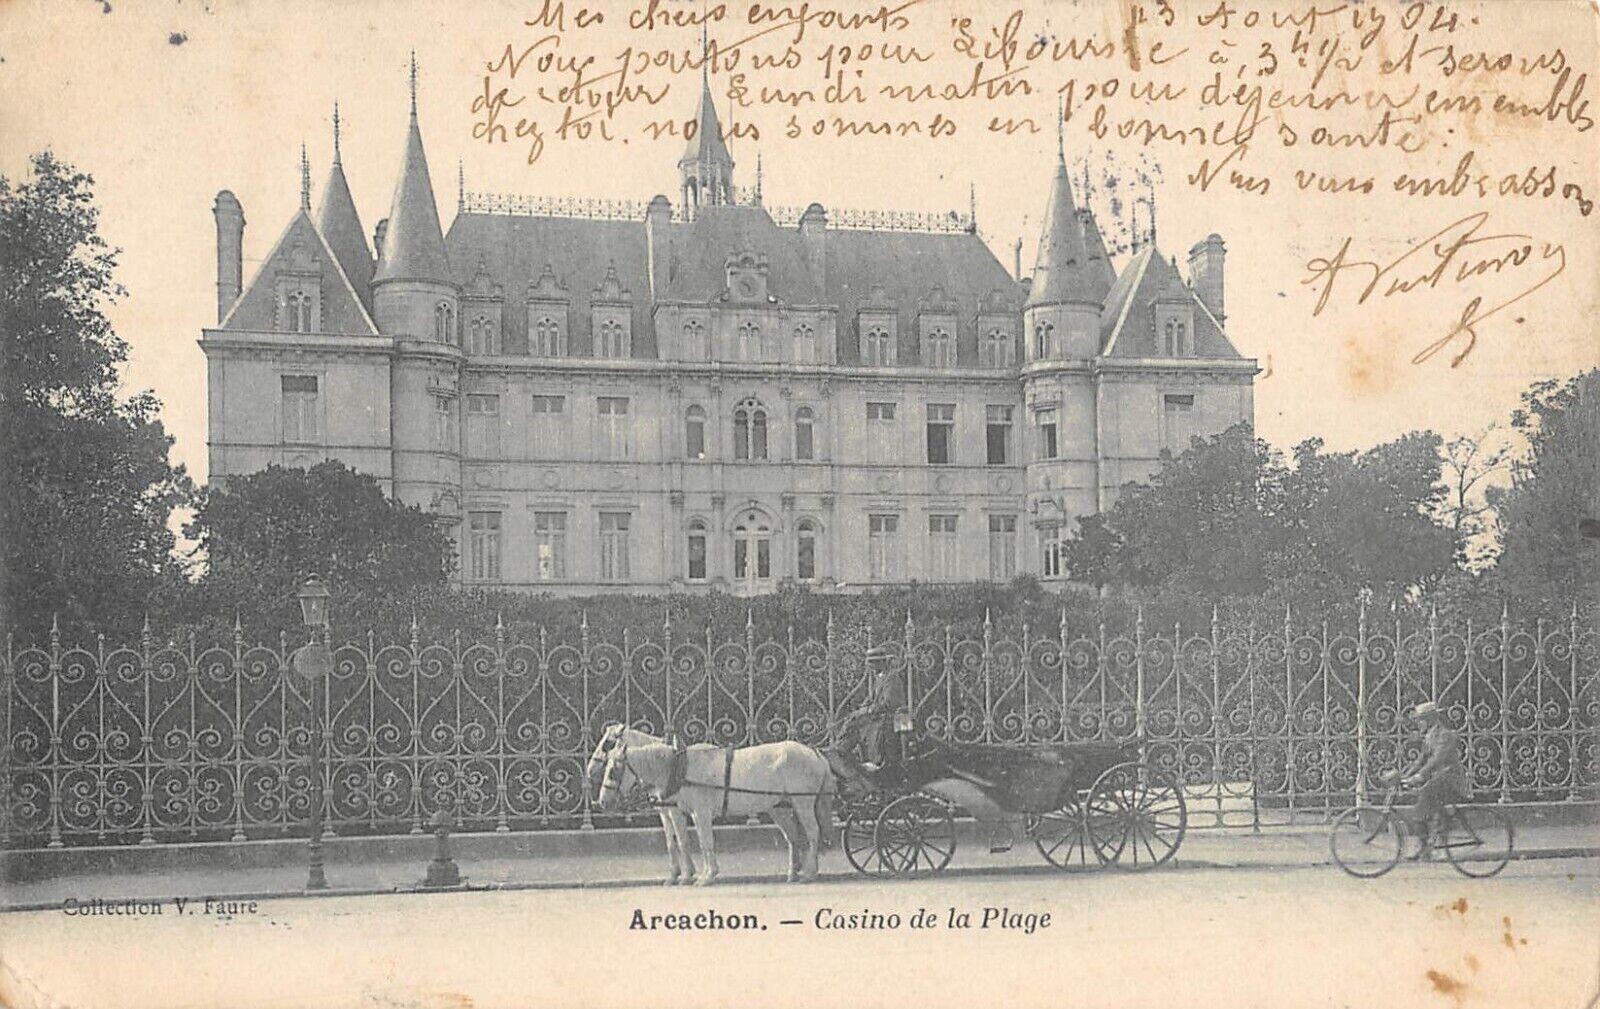 Mes chers enfants 13 Aout 1904.
Nous partons pour Libourne à 3 h 1/2 et serons
de retour Lundi matin pour déjeuner ensembles
chez toi. nous sommes en bonne santé.
Nous vous embrassons
Collection V. Faure
Arcachon. — Casino de la Plage